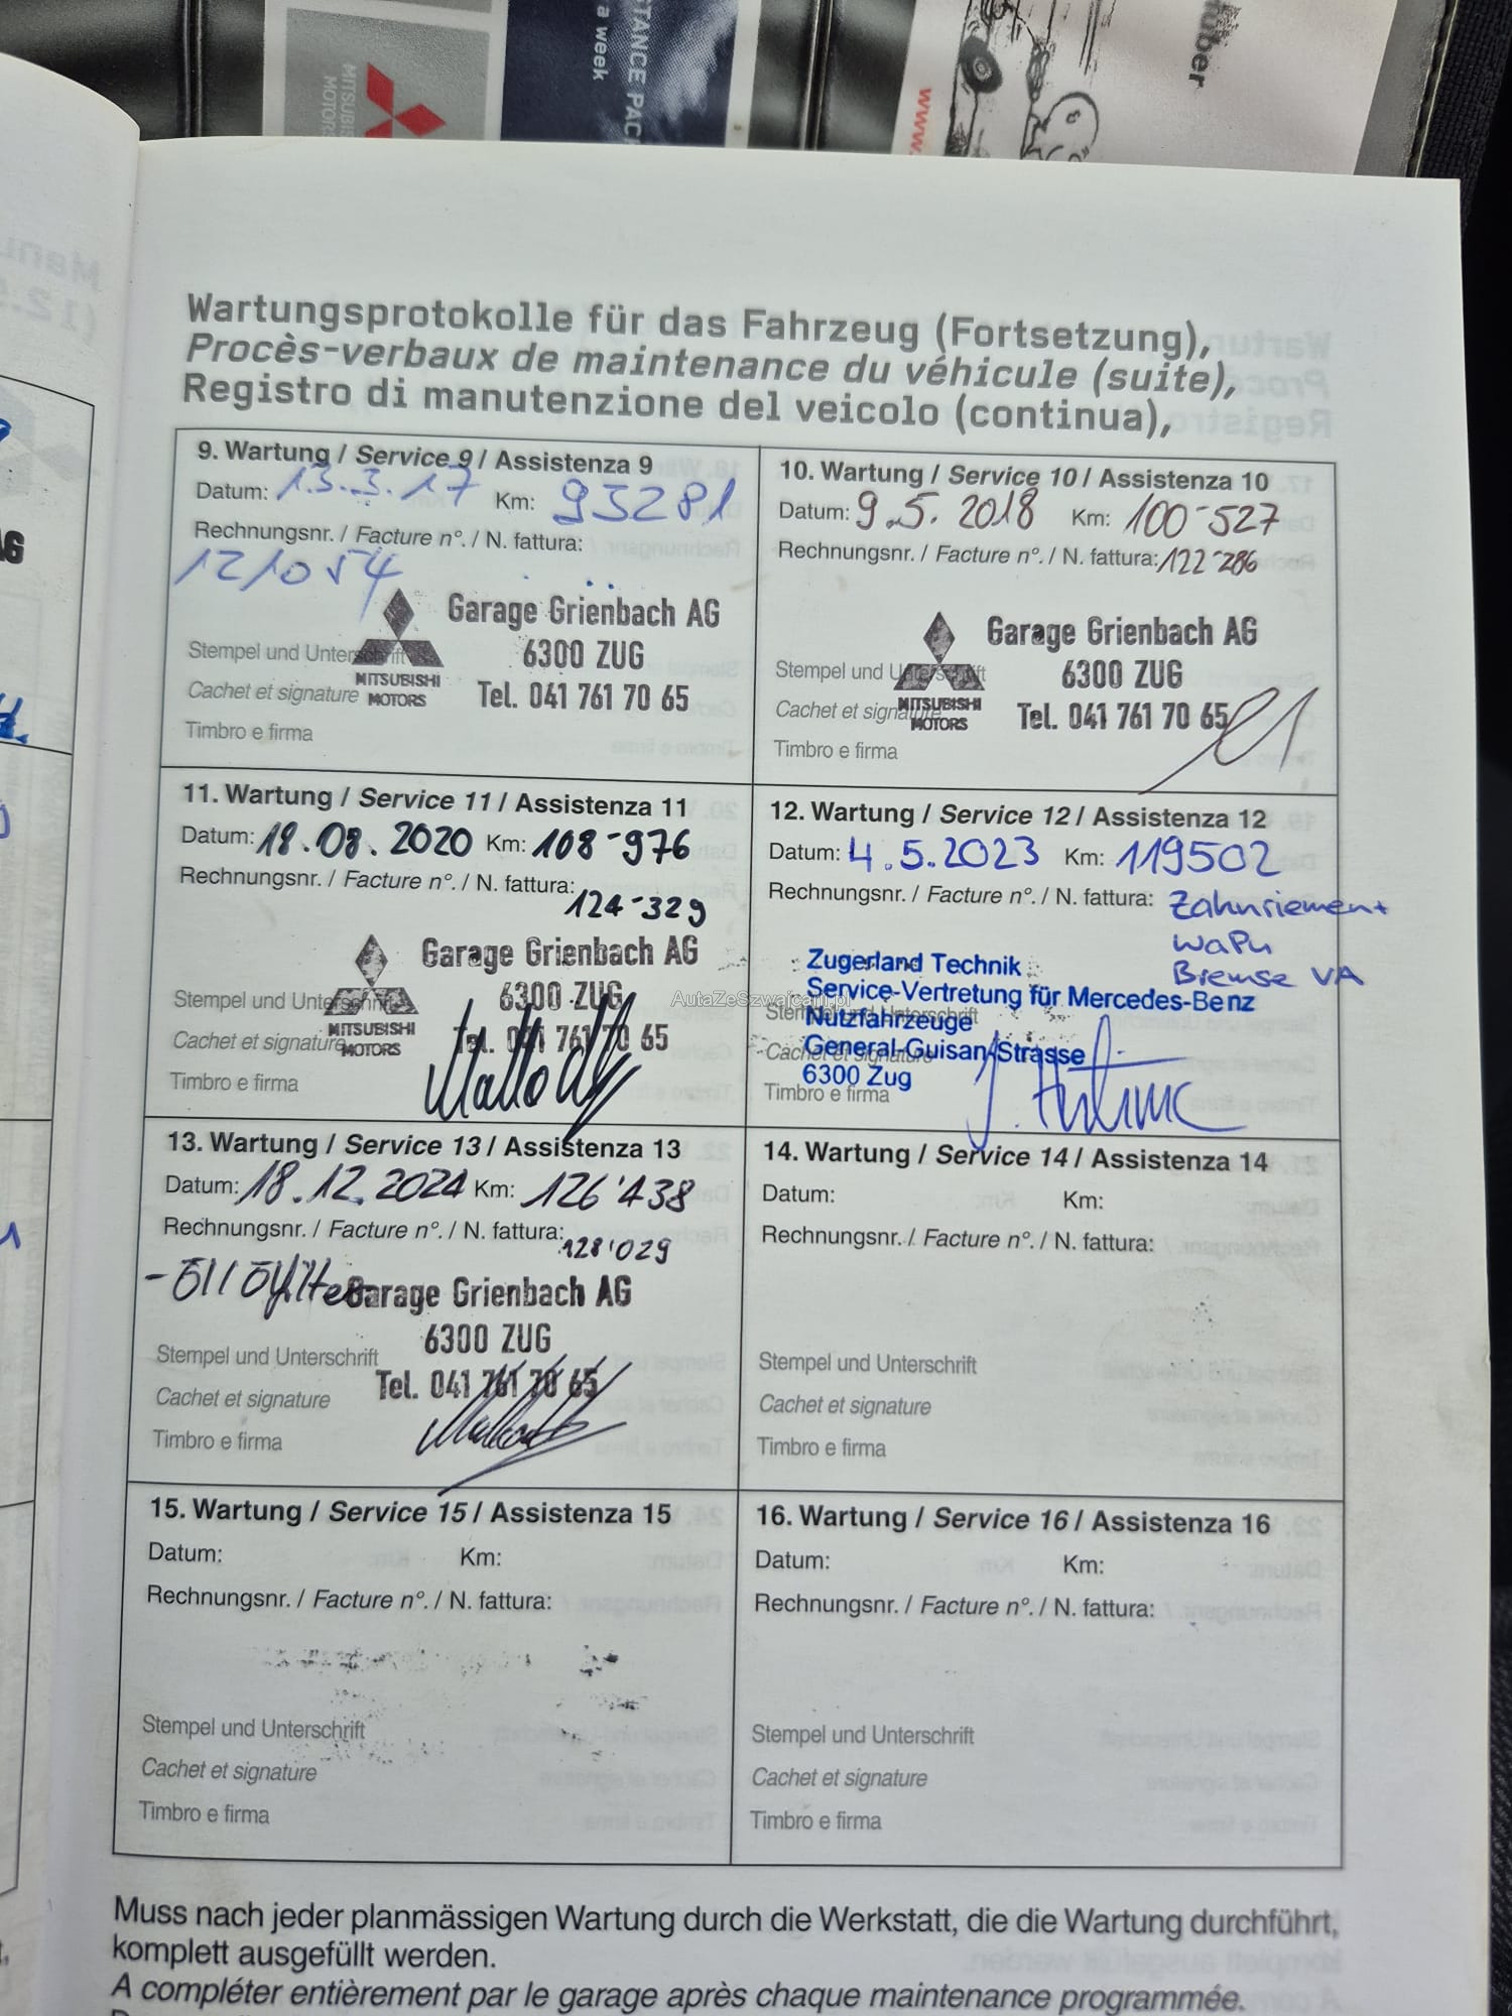 MITSUBISHI
MOTORS
STANCE PAC
a week
www.
Wartungsprotokolle für das Fahrzeug (Fortsetzung),
Procès-verbaux de maintenance du véhicule (suite),
Registro di manutenzione del veicolo (continua),
9. Wartung / Service 9 / Assistenza 9
Datum: 13.3.17 Km: 93281
Rechnungsnr. / Facture n°. / N. fattura:
121054
Garage Grienbach AG
6300 ZUG
Tel. 041 761 70 65
MITSUBISHI
MOTORS
Stempel und Unterschrift
Cachet et signature
Timbro e firma
10. Wartung / Service 10 / Assistenza 10
Datum: 9.5.2018 Km: 100-527
Rechnungsnr. / Facture n°. / N. fattura: 122-286
Garage Grienbach AG
6300 ZUG
Tel. 041 761 70 65
MITSUBISHI
MOTORS
Stempel und Unterschrift
Cachet et signature
Timbro e firma
11. Wartung / Service 11 / Assistenza 11
Datum: 18.08.2020 Km: 108-976
Rechnungsnr. / Facture n°. / N. fattura:
124-329
Garage Grienbach AG
6300 ZUG
Tel. 041 761 70 65
MITSUBISHI
MOTORS
Stempel und Unterschrift
Cachet et signature
Timbro e firma
AutaZeSzwajcarii.pl
12. Wartung / Service 12 / Assistenza 12
Datum: 4.5.2023 Km: 119502
Rechnungsnr. / Facture n°. / N. fattura: Zahnriemen+
WaPu
Bremse VA
Zugerland Technik
Service-Vertretung für Mercedes-Benz
Nutzfahrzeuge
General-Guisan-Strasse
6300 Zug
Stempel und Unterschrift
Cachet et signature
Timbro e firma
13. Wartung / Service 13 / Assistenza 13
Datum: 18.12.2024 Km: 126'438
Rechnungsnr. / Facture n°. / N. fattura:
128'029
- Öl / Ölfilter
Garage Grienbach AG
6300 ZUG
Tel. 041 761 70 65
Stempel und Unterschrift
Cachet et signature
Timbro e firma
14. Wartung / Service 14 / Assistenza 14
Datum: Km:
Rechnungsnr. / Facture n°. / N. fattura:
Stempel und Unterschrift
Cachet et signature
Timbro e firma
15. Wartung / Service 15 / Assistenza 15
Datum: Km:
Rechnungsnr. / Facture n°. / N. fattura:
Stempel und Unterschrift
Cachet et signature
Timbro e firma
16. Wartung / Service 16 / Assistenza 16
Datum: Km:
Rechnungsnr. / Facture n°. / N. fattura:
Stempel und Unterschrift
Cachet et signature
Timbro e firma
Muss nach jeder planmässigen Wartung durch die Werkstatt, die die Wartung durchführt,
komplett ausgefüllt werden.
A compléter entièrement par le garage après chaque maintenance programmée.